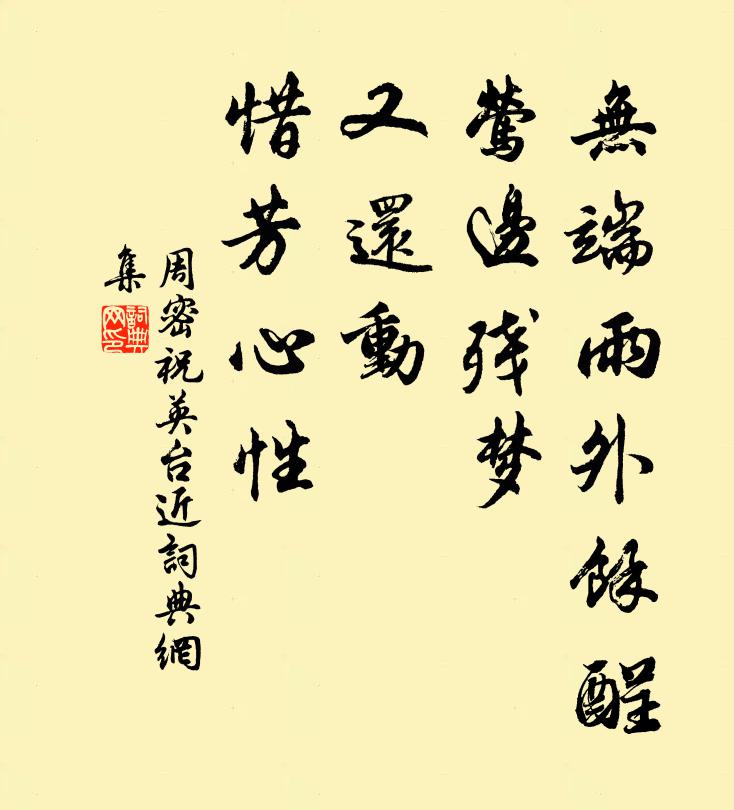 無端雨外餘酲
鶯邊残梦
又還動
惜芳心性
周密祝英台近詞典網
集
詞典网印